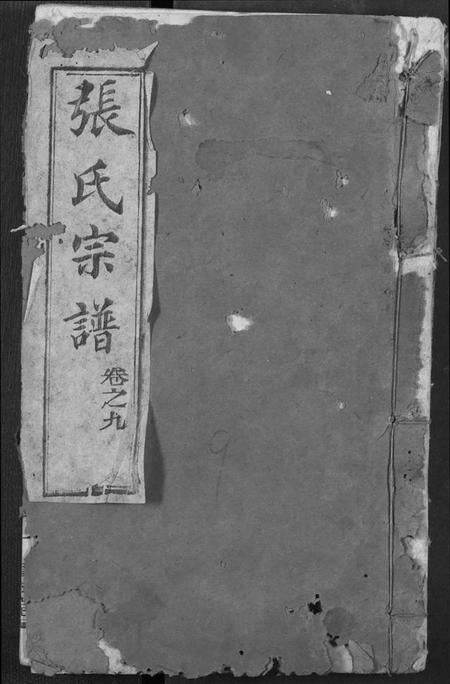 張氏宗譜
卷之九
9